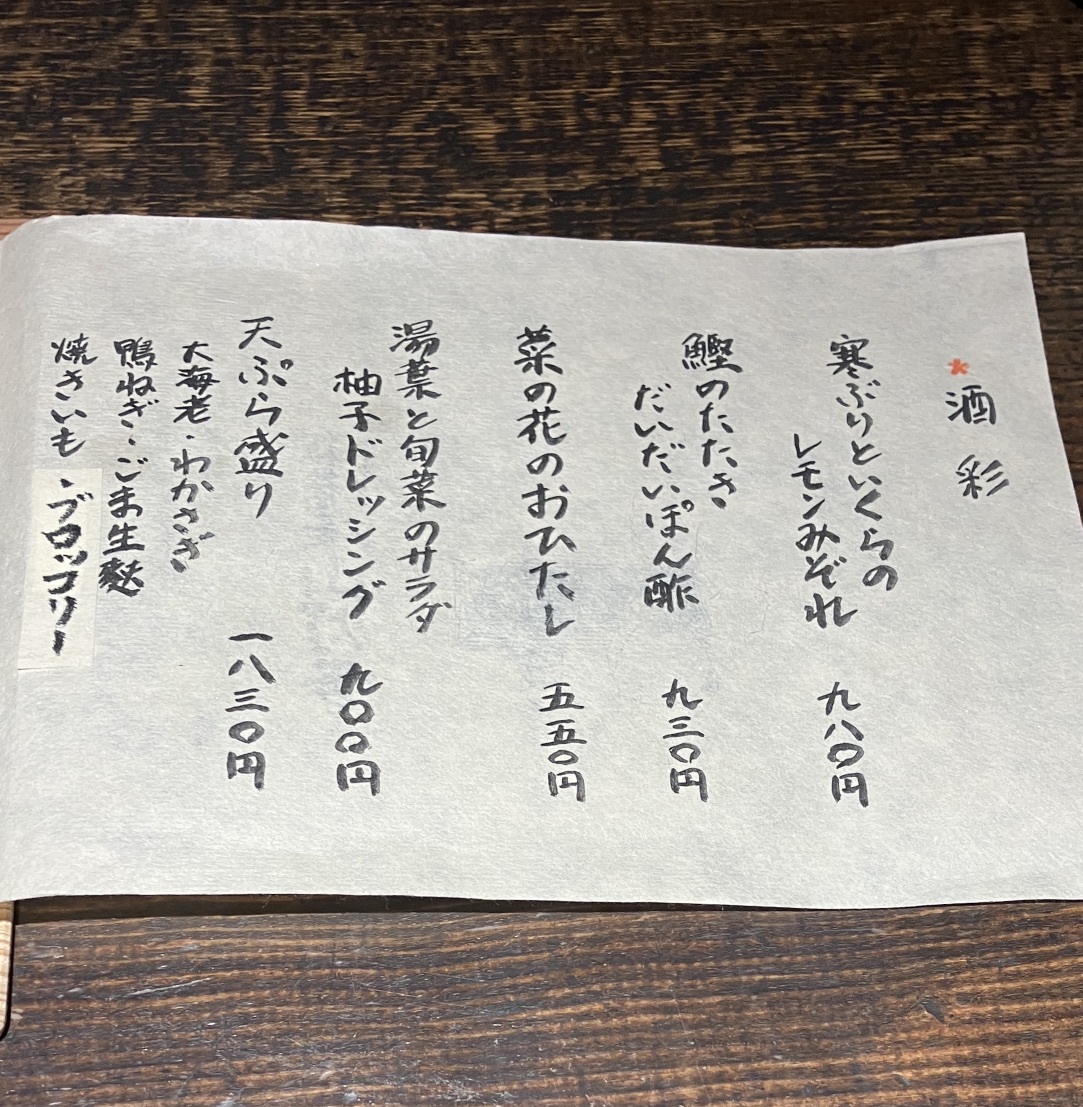 酒彩
寒ぶりといくらの
レモンみぞれ 九八〇円
鰹のたたき
だいだいぽん酢 九三〇円
菜の花のおひたし 五五〇円
湯葉と旬菜のサラダ
柚子ドレッシング 九〇〇円
天ぷら盛り 一八三〇円
大海老・わかさぎ
鴨ねぎ・ごま生麩
焼きいも・ブロッコリー